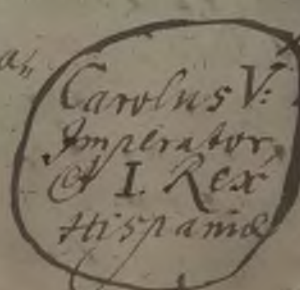 Carolus V:
Imperator
et I. Rex
Hispaniæ